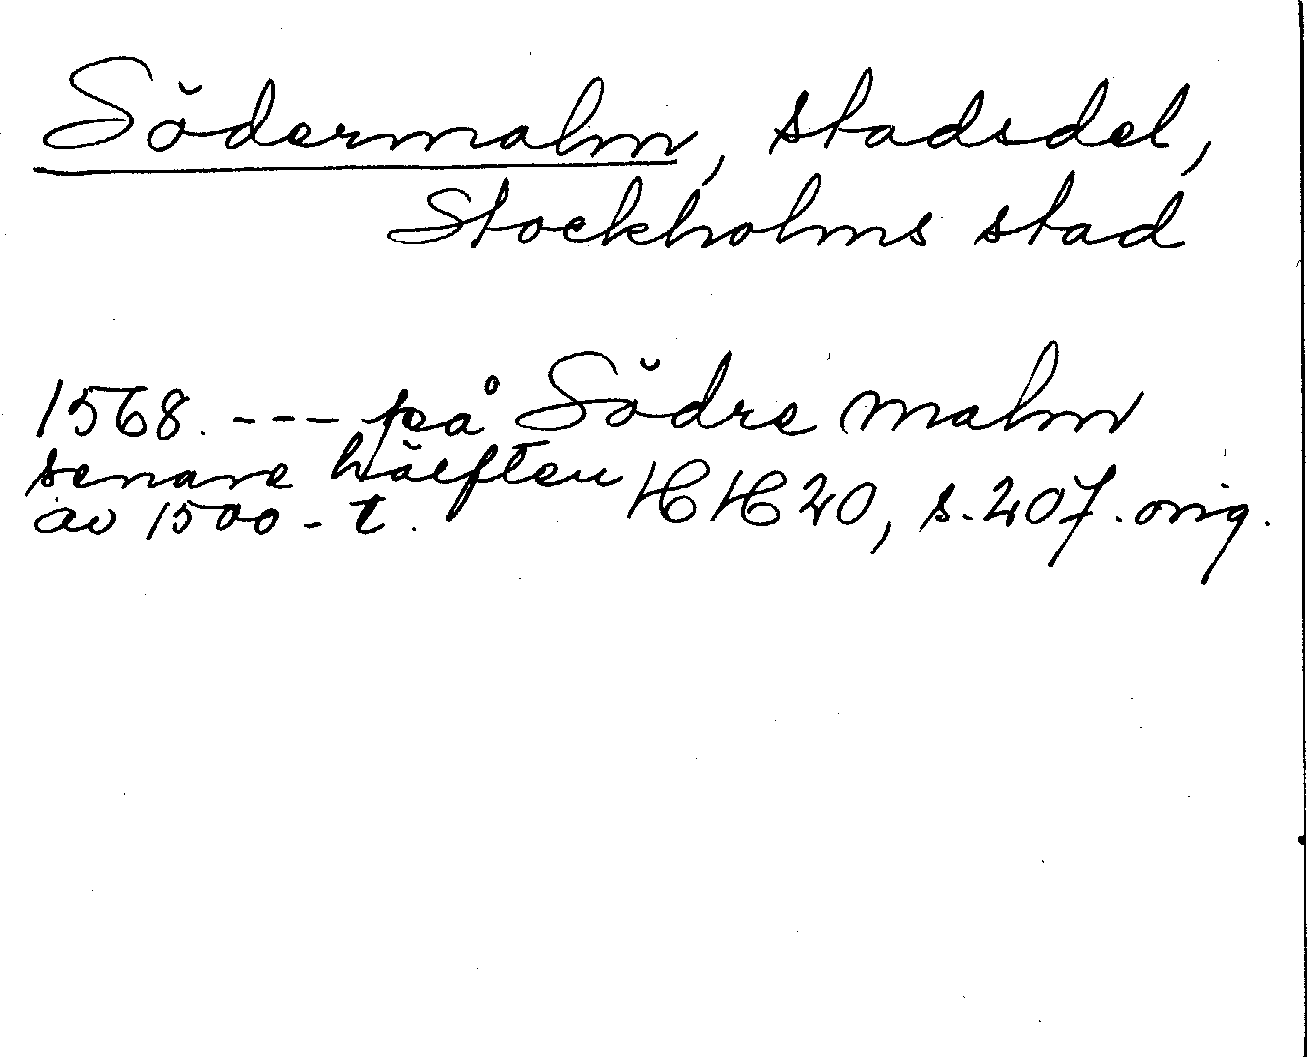 Södermalm, stadsdel,
Stockholms stad
1568. --- på Södre malm
senare hälften HH 20, s. 207. orig.
av 1500-t.